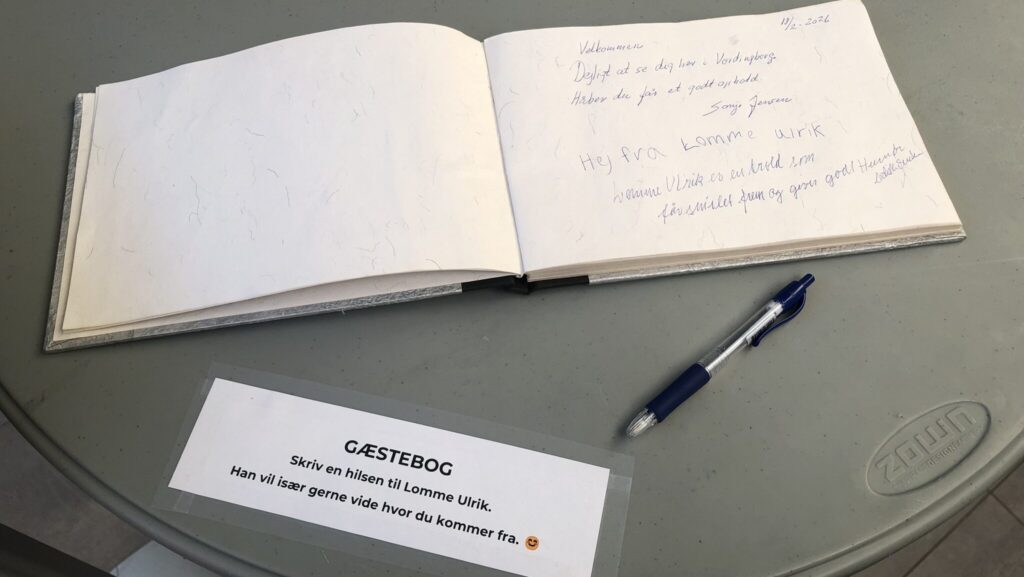 18/2-2026
Velkommen
Dejligt at se dig her i Vordingborg.
Håber du får et godt ophold.
Sonja Jensen
Hej fra Lomme Ulrik
Lomme Ulrik er en trold som
får smilet frem og giver godt Humør
GÆSTEBOG
Skriv en hilsen til Lomme Ulrik.
Han vil især gerne vide hvor du kommer fra. 😊
ZOWN